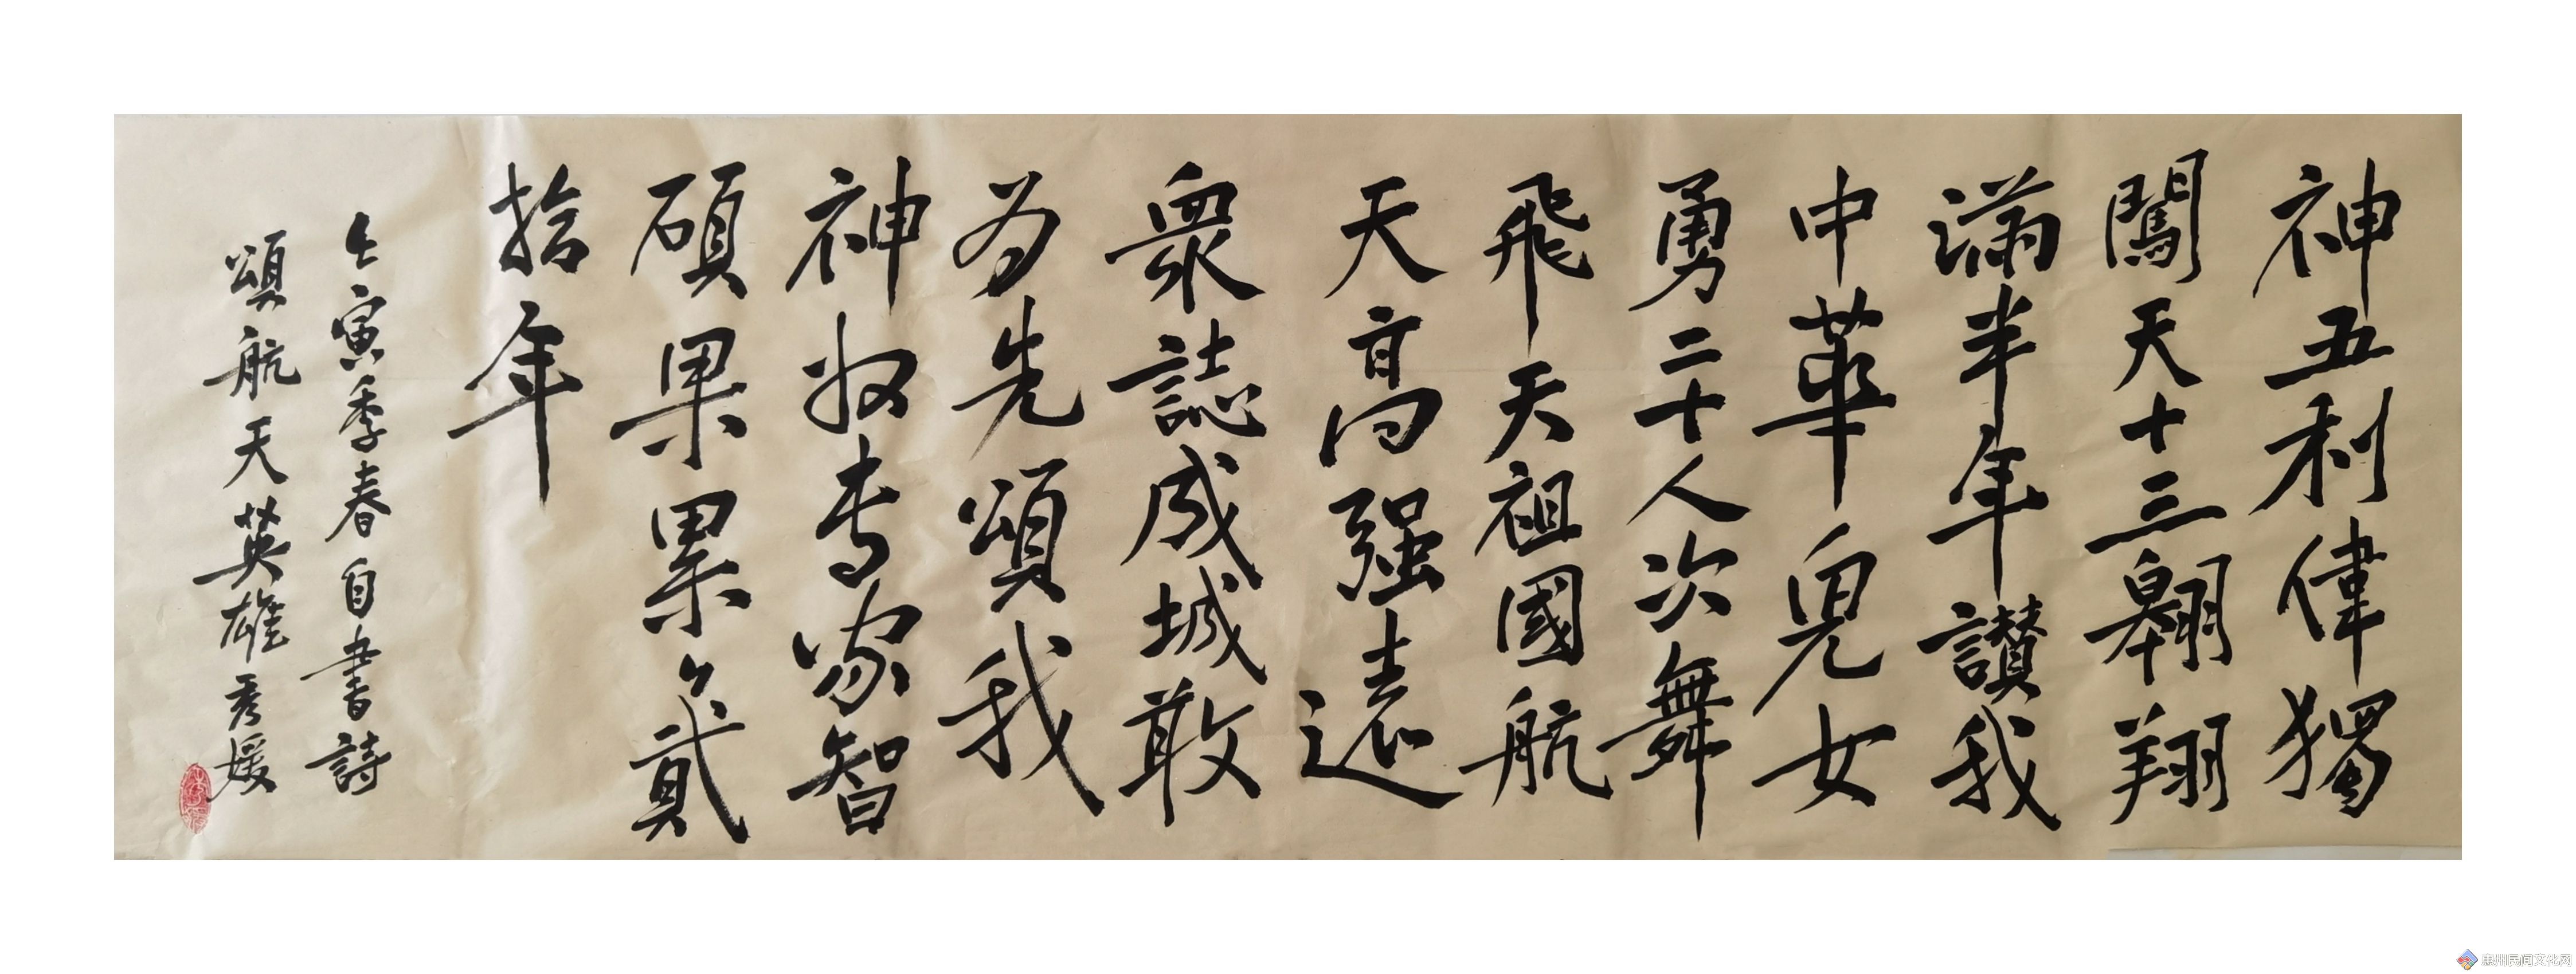 神五利偉獨
闖天十三翱翔
滿半年讚我
中華兒女
勇二十人次舞
飛天祖國航
天高强志遠
衆誌成城敢
为先頌我
神舟专家智
碩果累今貳
拾年
壬寅季春自書詩
頌航天英雄秀媛
惠州民间文化网